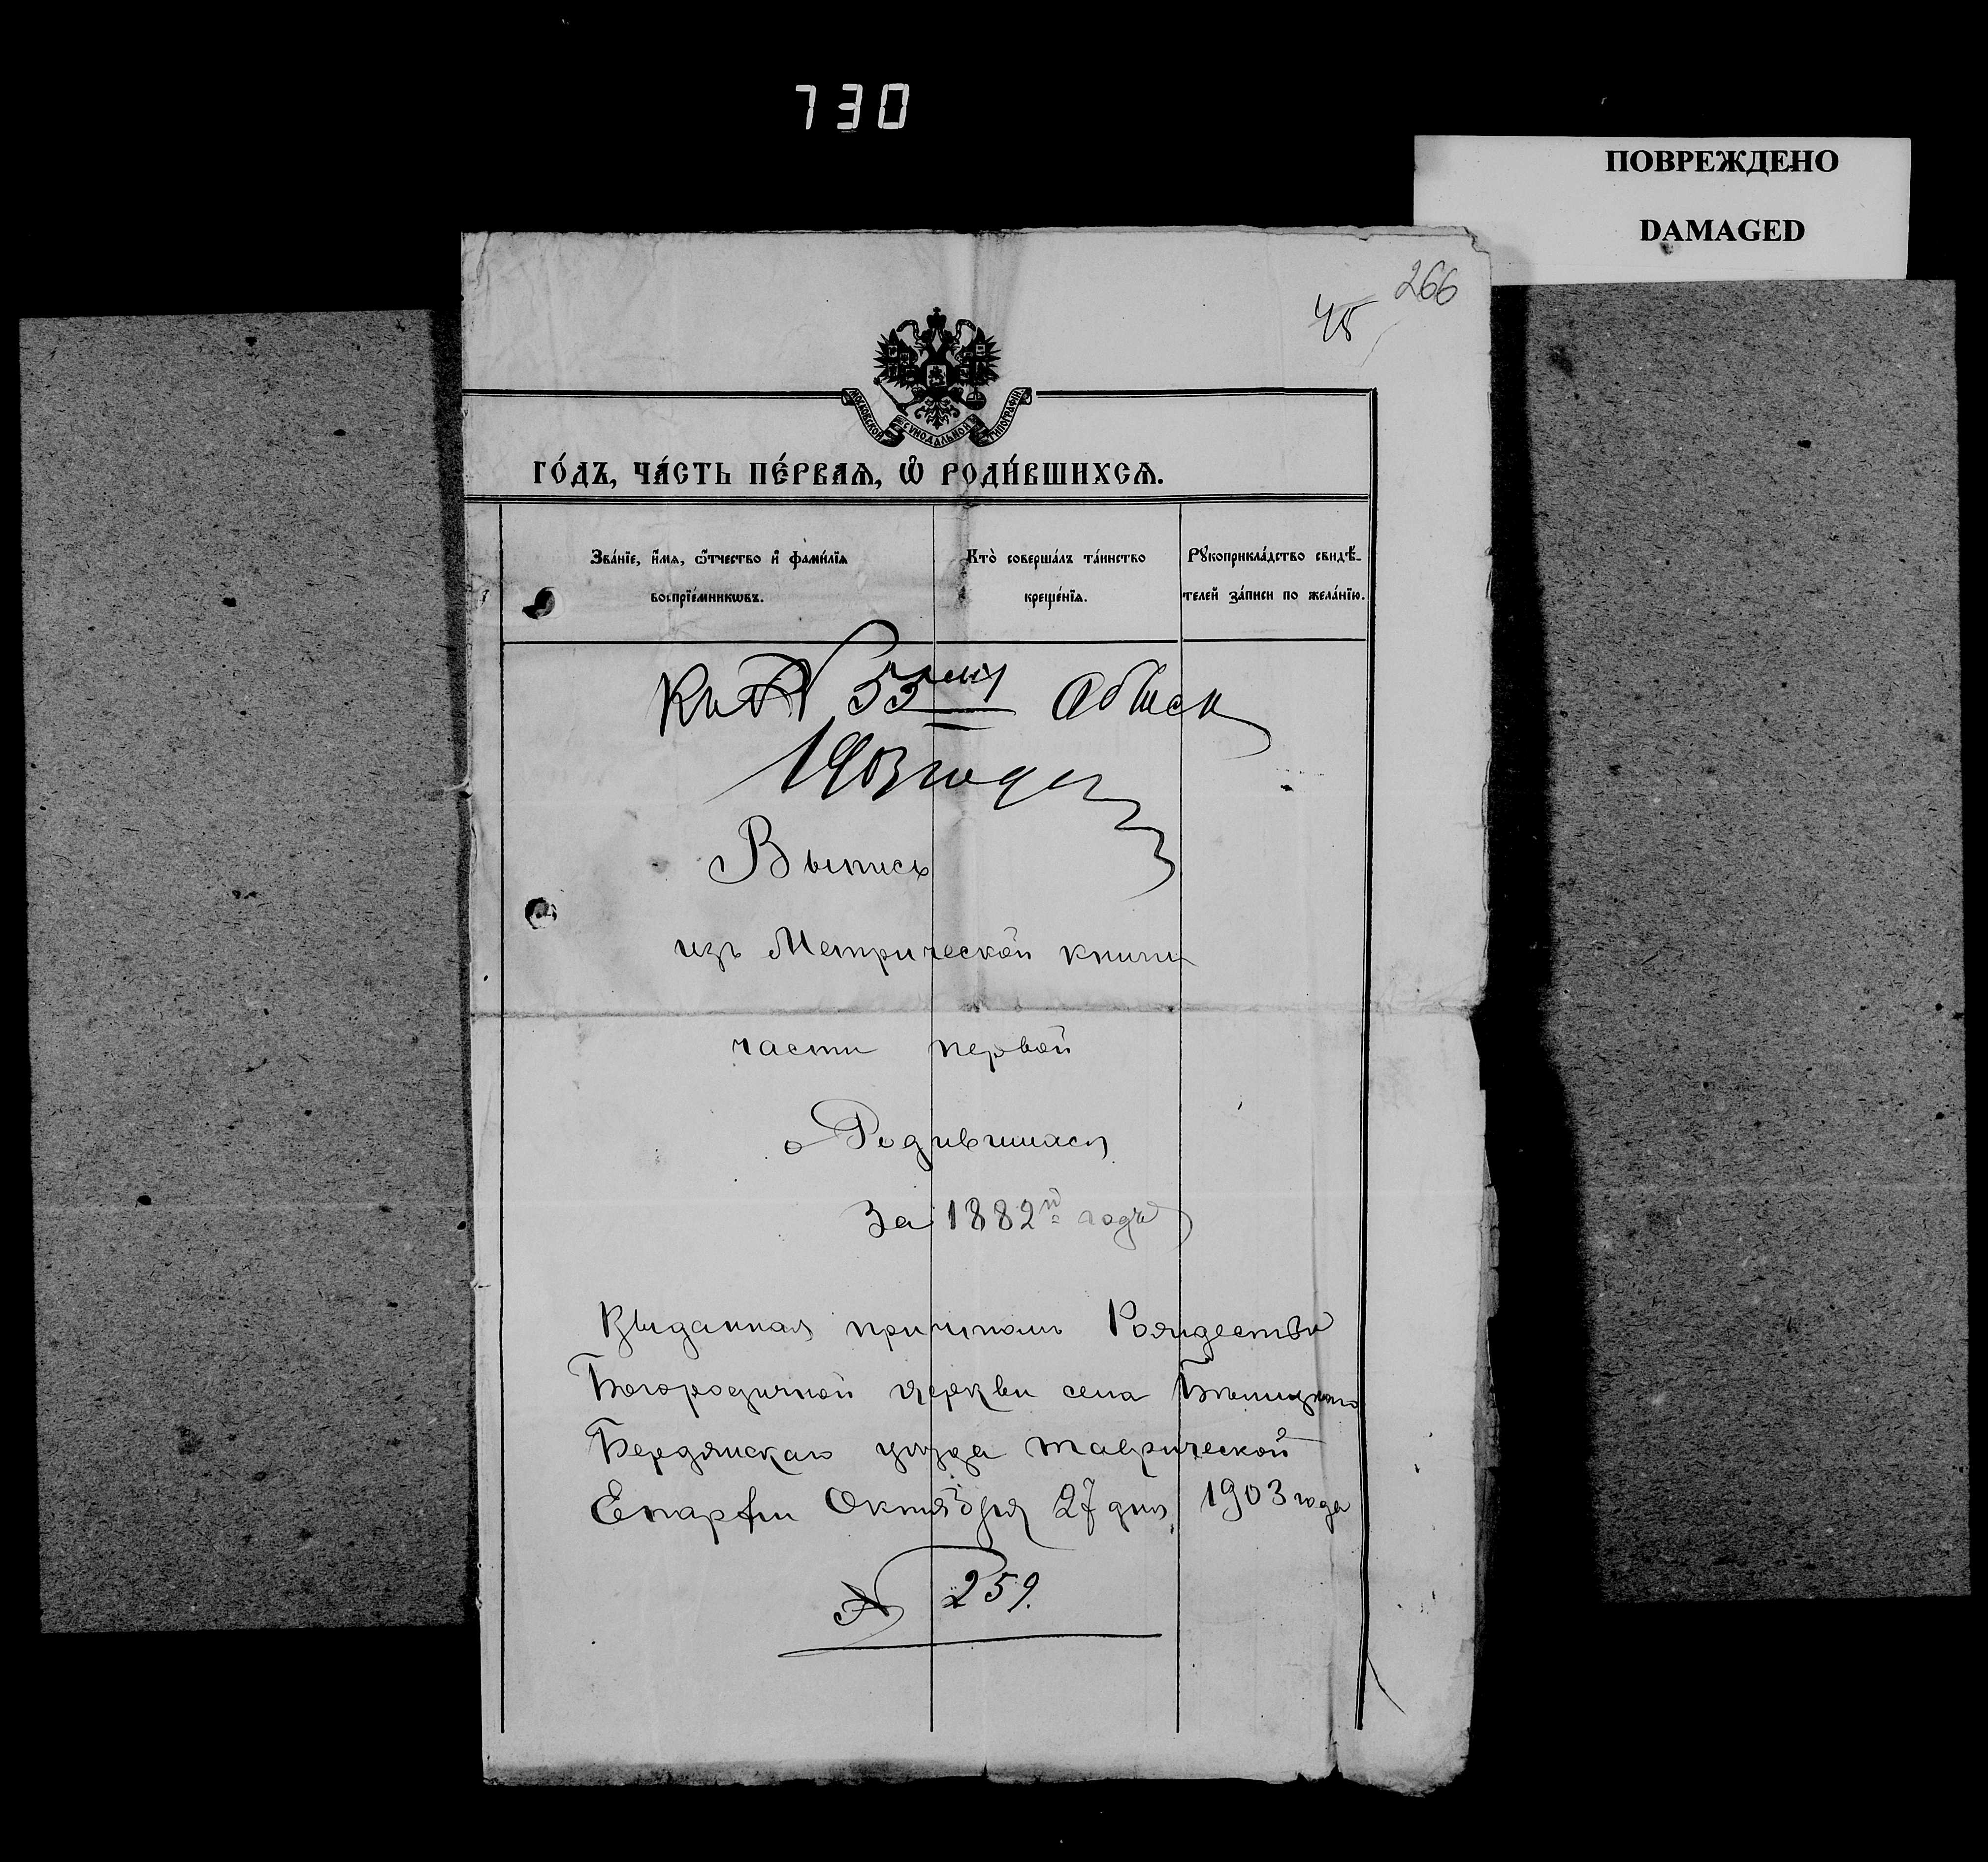 730
ПОВРЕЖДЕНО
DAMAGED
266
45
МОСКОВСКОЙ СѴНОДАЛЬНОЙ ТИПОГРАФІИ
ГО́ДЪ, ЧА́СТЬ ПЕ́РВАѦ, Ѡ҆ РОДИ́ВШИХСѦ.
Зва́нїе, и҆́мѧ, ѻ҆́тчество и҆ фами́лїѧ
воспрїе́мникѡвъ.
Кто̀ соверша́лъ та́инство
креще́нїѧ.
Рꙋкоприкла́дство свидѣ́-
телей за́писи по жела́нїю.
Къ № 53му Обыск
1903 года
Выпись
изъ Метрической книги
части первой
о Родившихся
За 1882й годъ
Выданная причтомъ Рождество
Богородичной церкви села
Бердянскаго уѣзда Таврической
Епархіи Октября 27 дня 1903 года
№ 259.